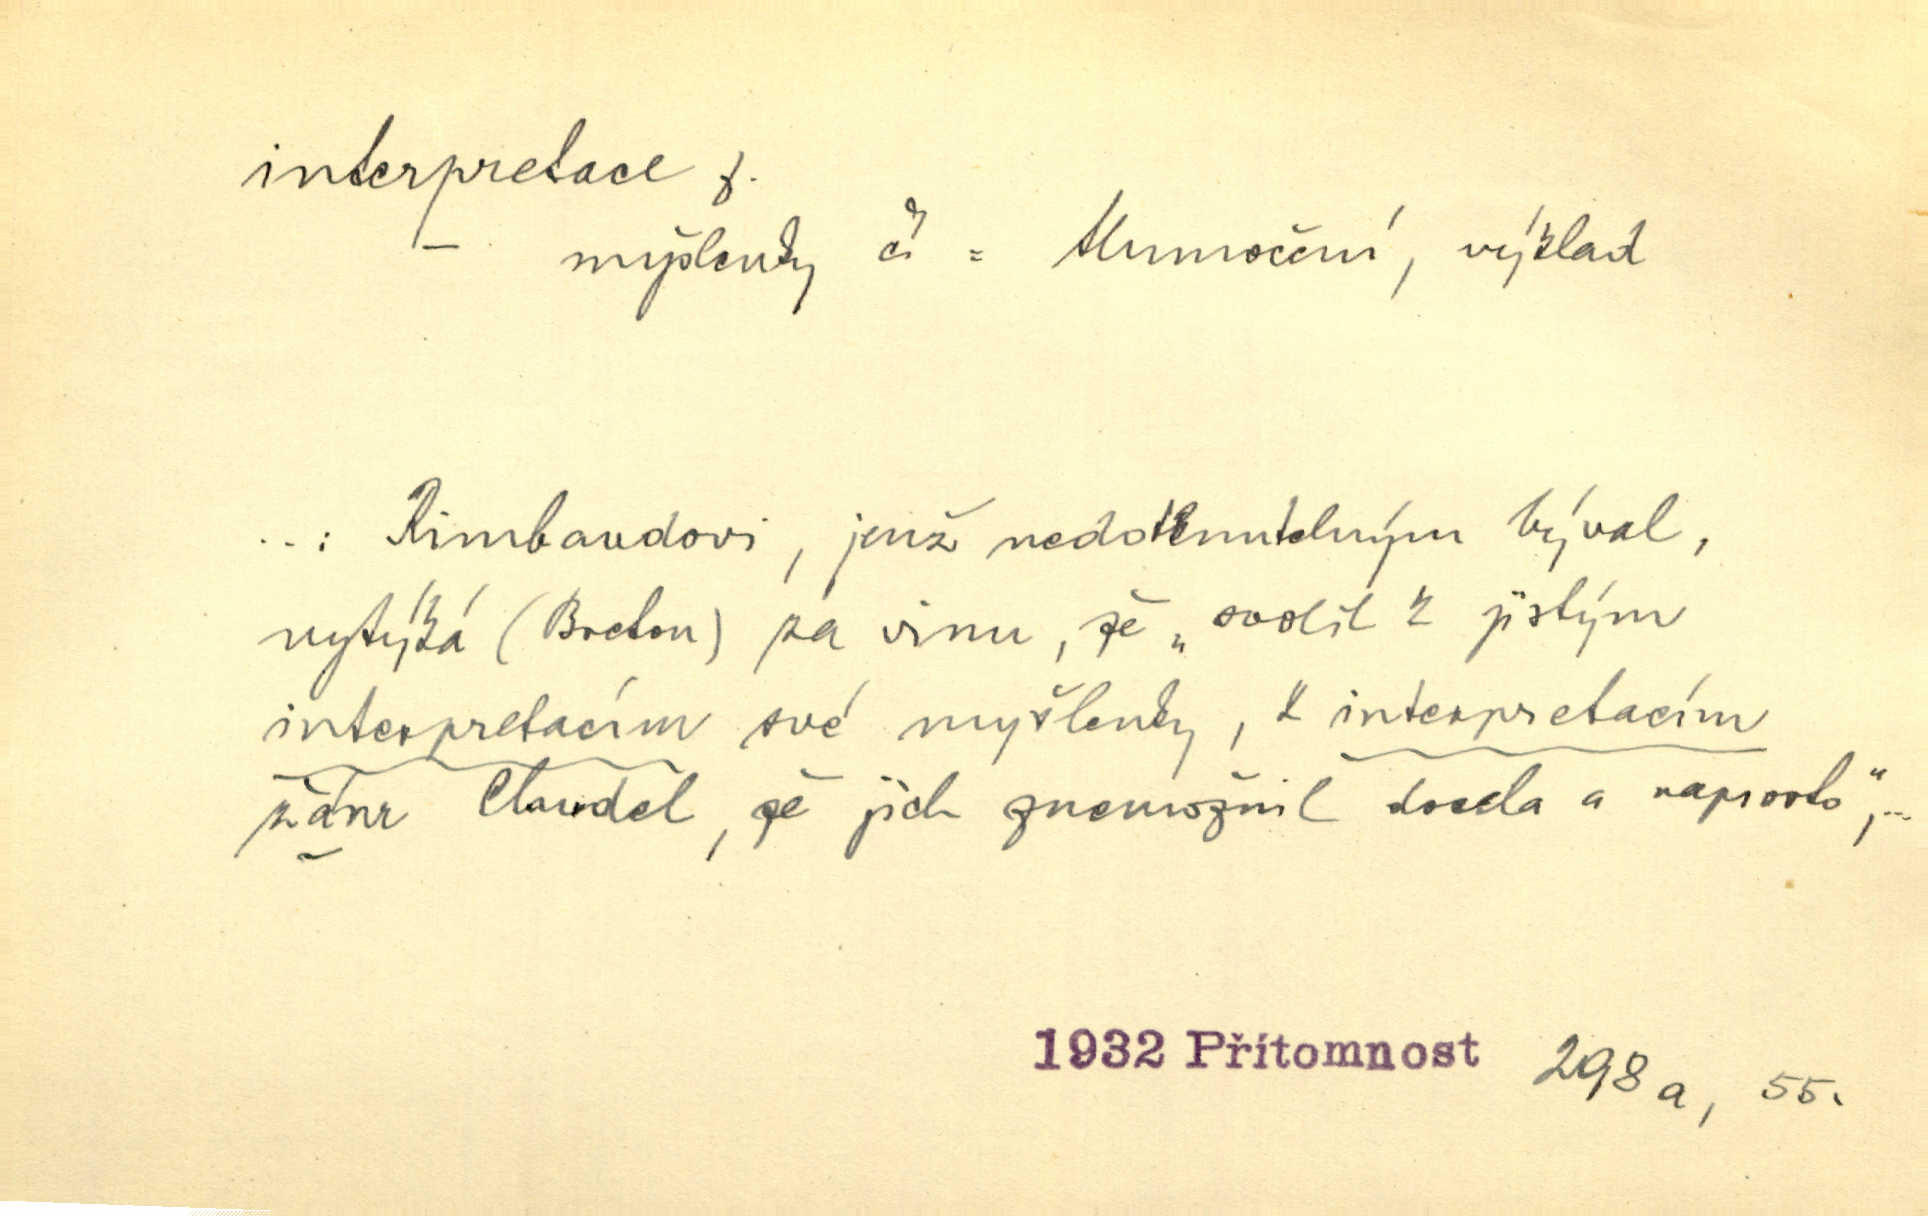 interpretace f.
– myšlenky čí = tlumočení, výklad
..: Rimbaudovi, jenž nedotknutelným býval,
vytýká (Breton) za vinu, že „svolil k jistým
interpretacím své myšlenky, k interpretacím
žánr Claudel, že jich znemožnil docela a naprosto“,...
1932 Přítomnost 298 a, 55.